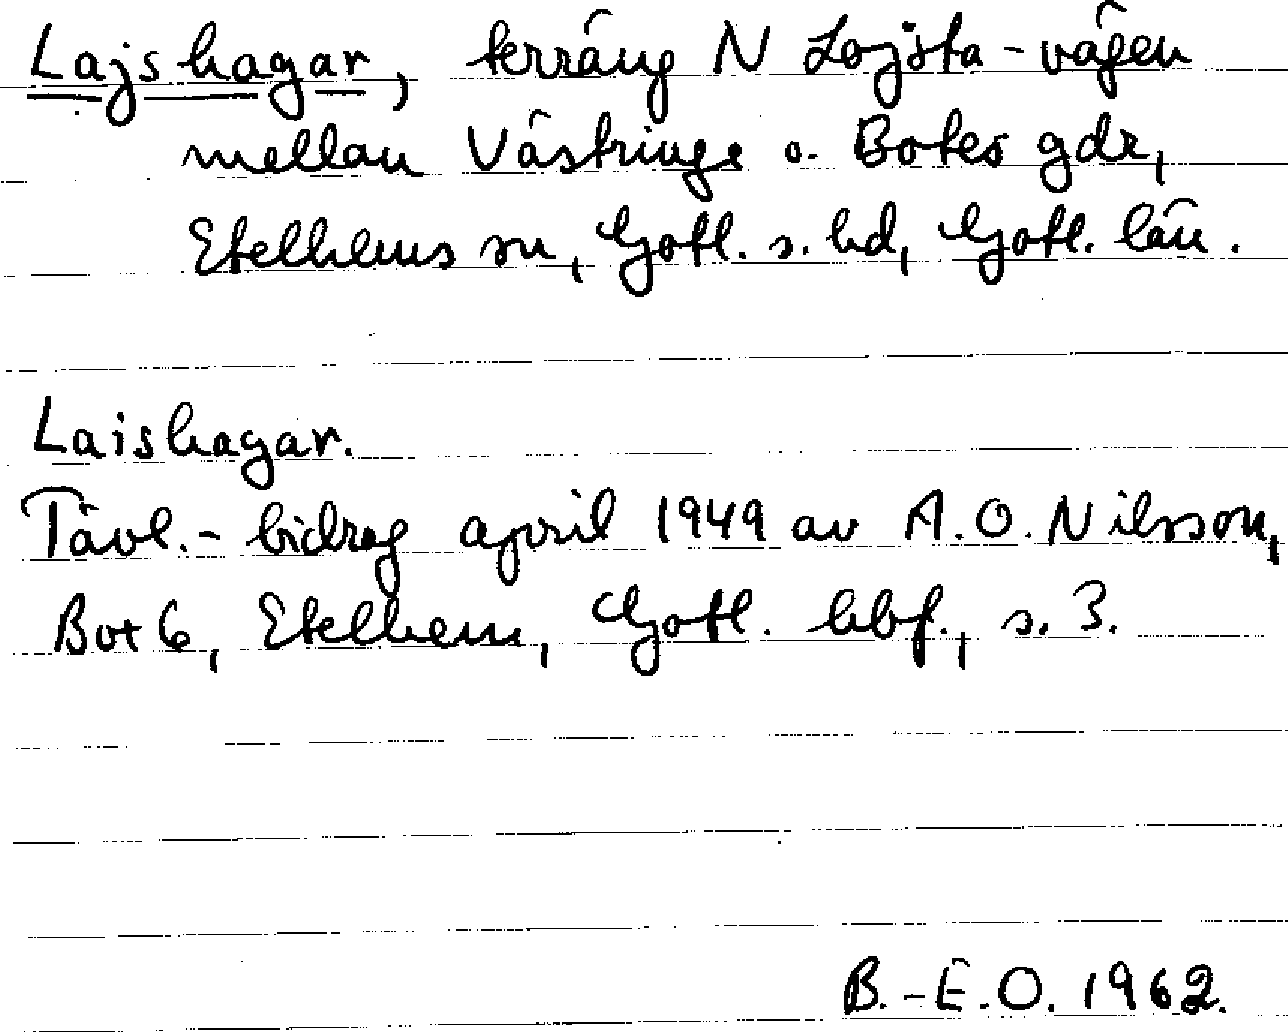 Lajshagar, terräng N Lojsta-vägen
mellan Västringe o. Botes gdr,
Etelhems sn, Gotl. s. hd, Gotl. län.
Laishagar.
Tävl.-bidrag april 1949 av A.O. Nilsson,
Box 6, Etelhem, Gotl. hbf., s. 3.
B.-E.O. 1962.